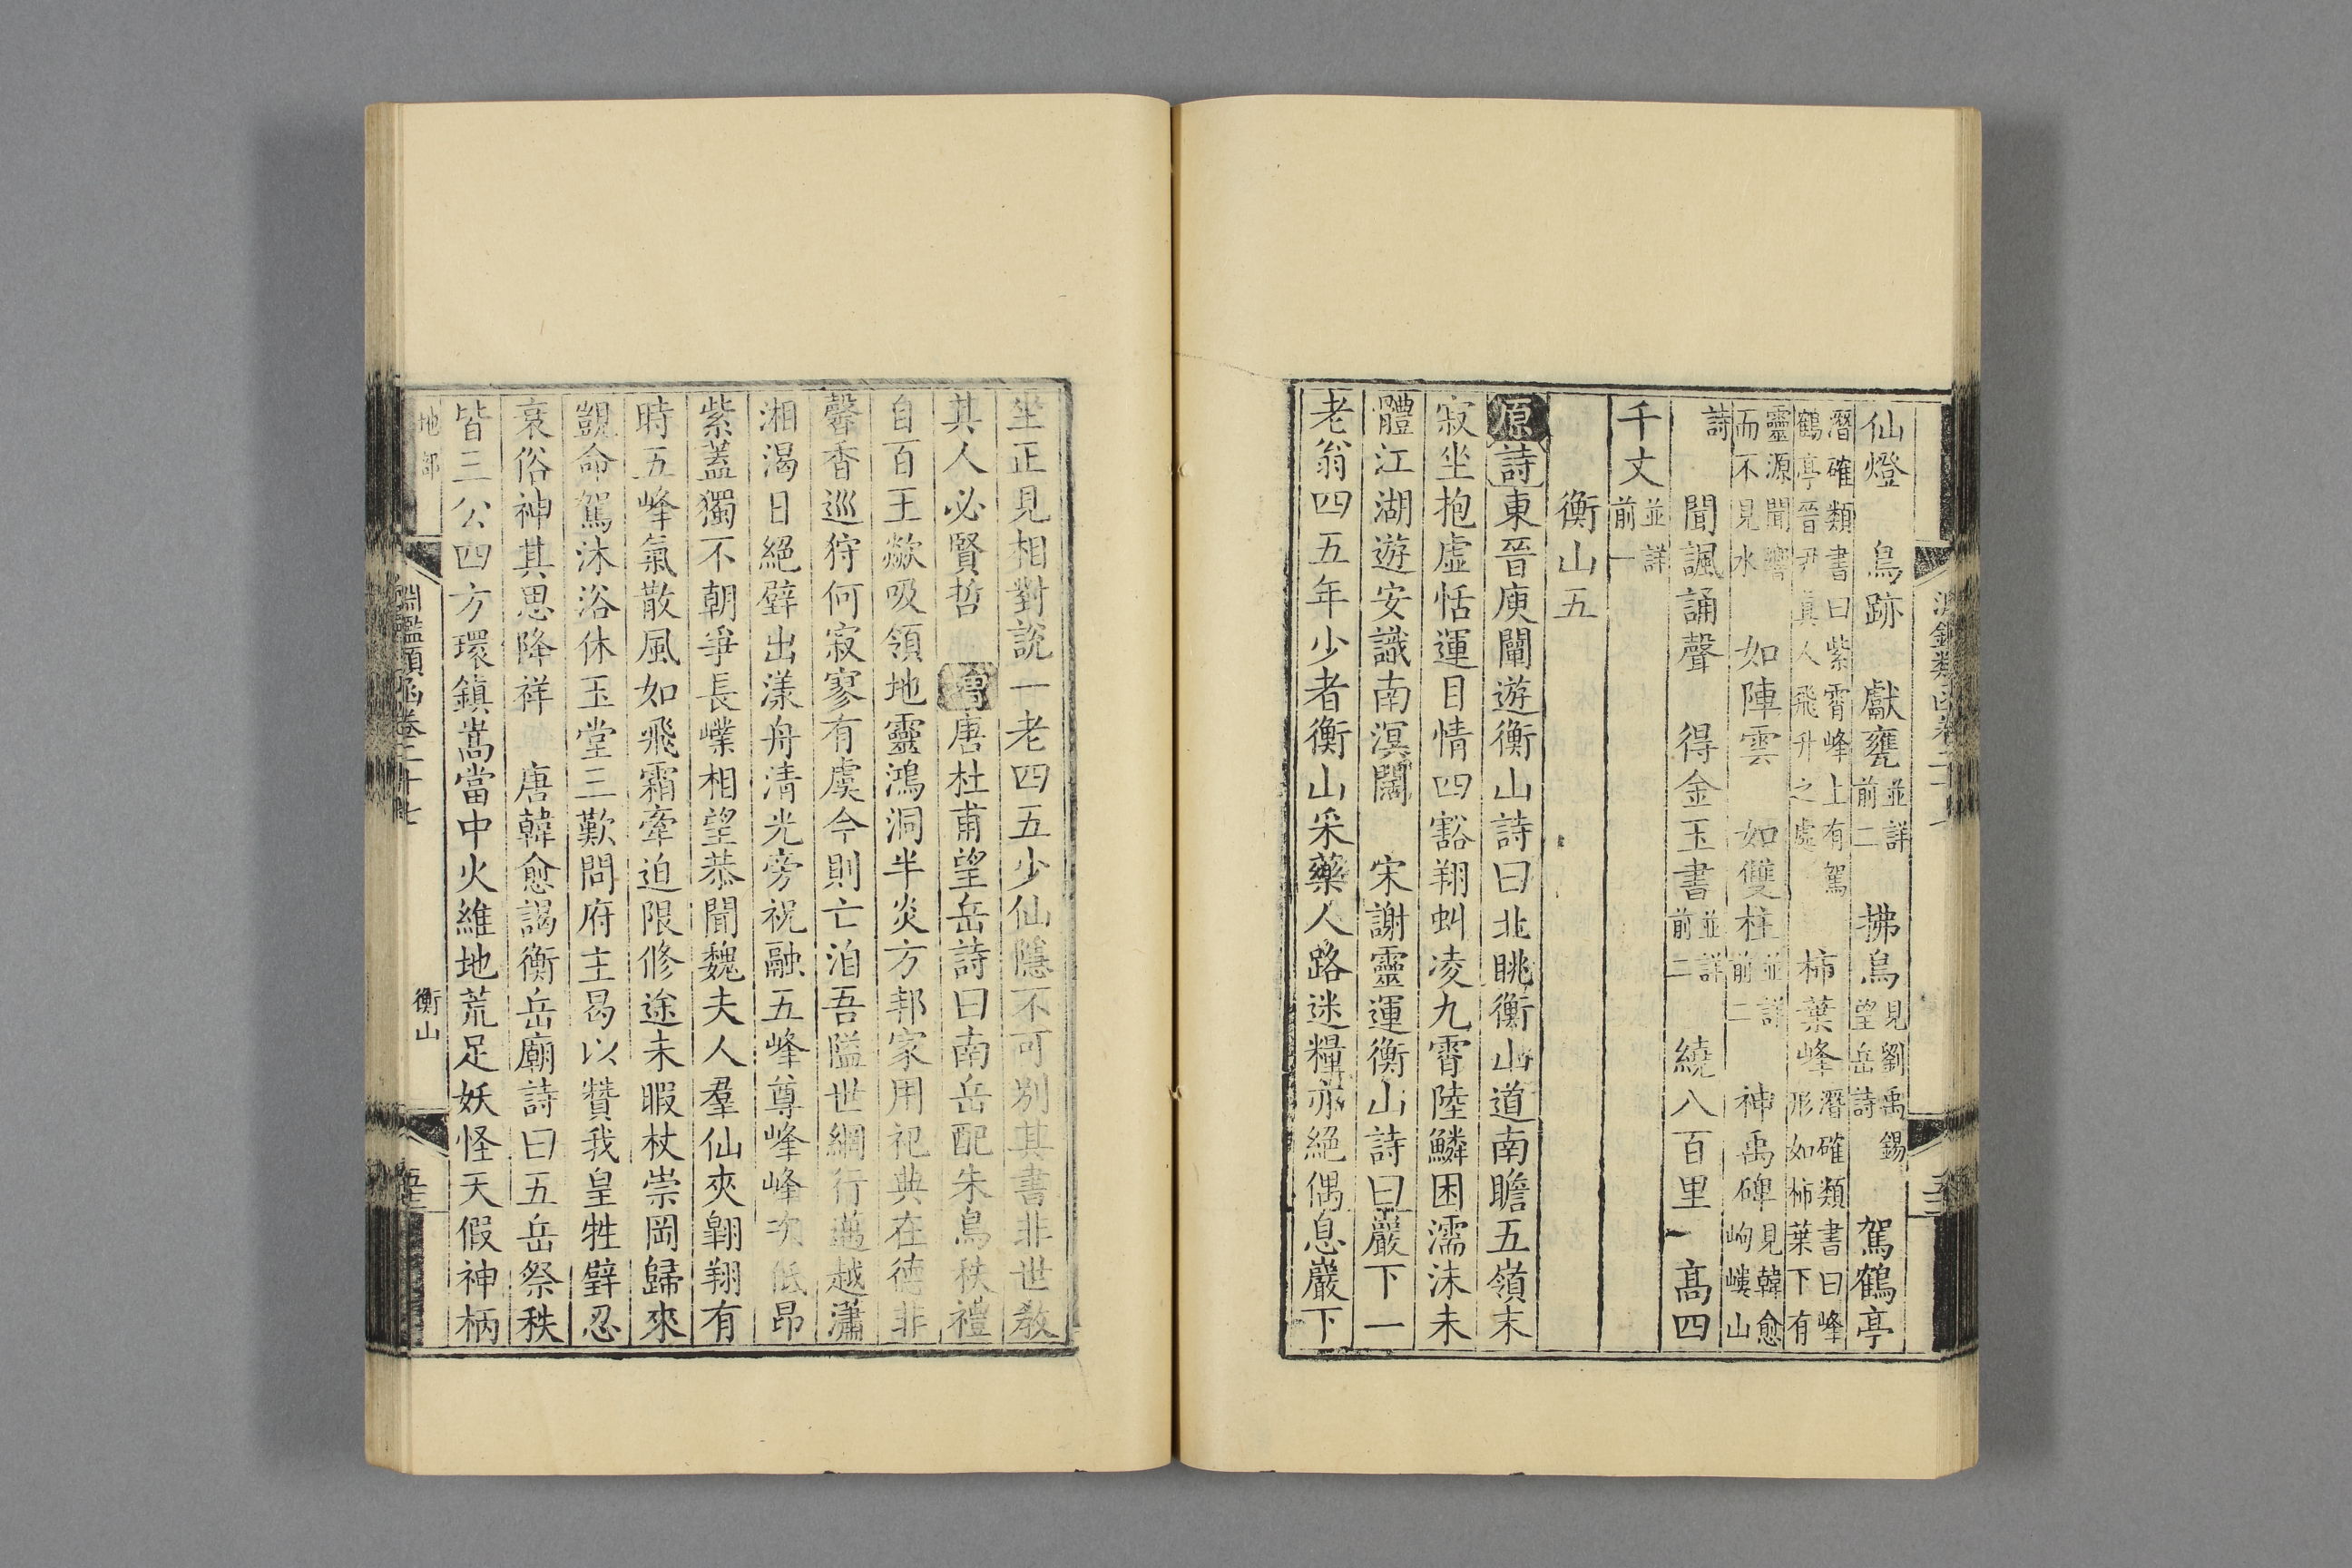 仙燈　烏跡　獻甕並詳前二　拂烏見劉禹錫望岳詩　駕鶴亭
潛確類書曰紫霄峰上有駕鶴亭晉尹真人飛升之處　柿葉峰潛確類書曰峰形如柿葉下有
靈源聞響而不見水　如陣雲　如雙柱並詳前二　神禹碑見韓愈岣嶁山
詩　聞諷誦聲　得金玉書並詳前二　繞八百里　高四
千丈並詳前一
衡山五
原詩東晉庾闡遊衡山詩曰北眺衡山道南瞻五嶺末
寂坐抱虛恬運目情四豁翔虯凌九霄陸鱗困濡沫未
體江湖遊安識南溟闊　宋謝靈運衡山詩曰巖下一
老翁四五年少者衡山采藥人路迷糧亦絕偶息巖下
坐正見相對說一老四五少仙隱不可別其書非世教
其人必賢哲　增唐杜甫望岳詩曰南岳配朱鳥秩禮
自百王歘吸領地靈鴻洞半炎方邦家用祀典在德非
馨香巡狩何寂寥有虞今則亡洎吾隘世網行邁越瀟
湘渴日絕壁出漾舟清光旁祝融五峰尊峰峰次低昂
紫蓋獨不朝爭長嶫相望恭聞魏夫人羣仙夾翺翔有
時五峰氣散風如飛霜牽迫限修途未暇杖崇岡歸來
覬命駕沐浴休玉堂三歎問府主曷以贊我皇牲璧忍
衰俗神其思降祥　唐韓愈謁衡岳廟詩曰五岳祭秩
皆三公四方環鎮嵩當中火維地荒足妖怪天假神柄
地部　淵鑑類函卷二十七　衡山